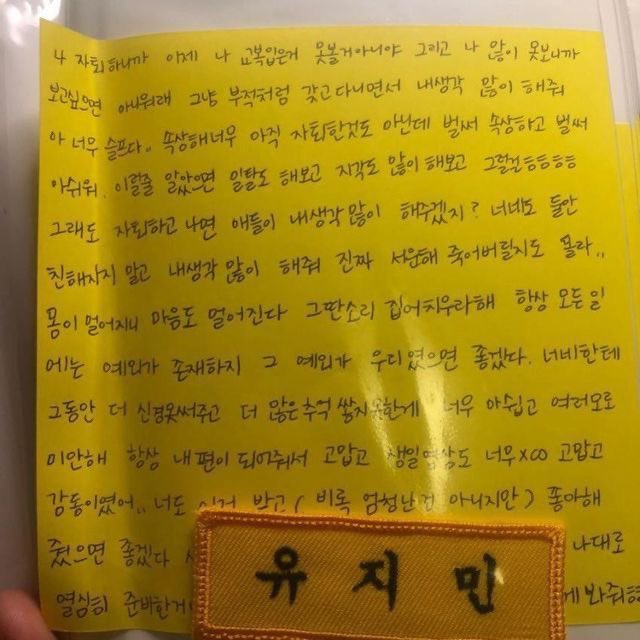 나 자퇴하니까 이제 나 교복입은거 못볼거아니야 그리고 나 많이 못보니까
보고싶으면 아니워래 그냥 부적처럼 갖고다니면서 내생각 많이 해줘
아 너무 슬프다.. 속상해너무 아직 자퇴한것도 아닌데 벌써 속상하고 벌써
아쉬워. 이럴줄 알았으면 일탈도 해보고 지각도 많이 해보고 그럴껄ㅎㅎㅎㅎ
그래도 자퇴하고 나면 애들이 내생각 많이 해주겠지? 너네도 둘만
친해지지 말고 내생각 많이 해줘 진짜 서운해 죽어버릴지도 몰라..
몸이 멀어지니 마음도 멀어진다 그딴소리 집어치우라해 항상 모든일
에는 예외가 존재하지 그 예외가 우리였으면 좋겠다. 너네한테
그동안 더 신경못써주고 더 많은추억 쌓지못한게 너무 아쉽고 여러모로
미안해 항상 내편이 되어줘서 고맙고 생일영상도 너무x00 고맙고
감동이였어.. 너도 이거 받고 (비록 엄청난건 아니지만) 좋아해
줬으면 좋겠다 나대로
열심히 준비한거 게 봐줘ㅎ
유지민